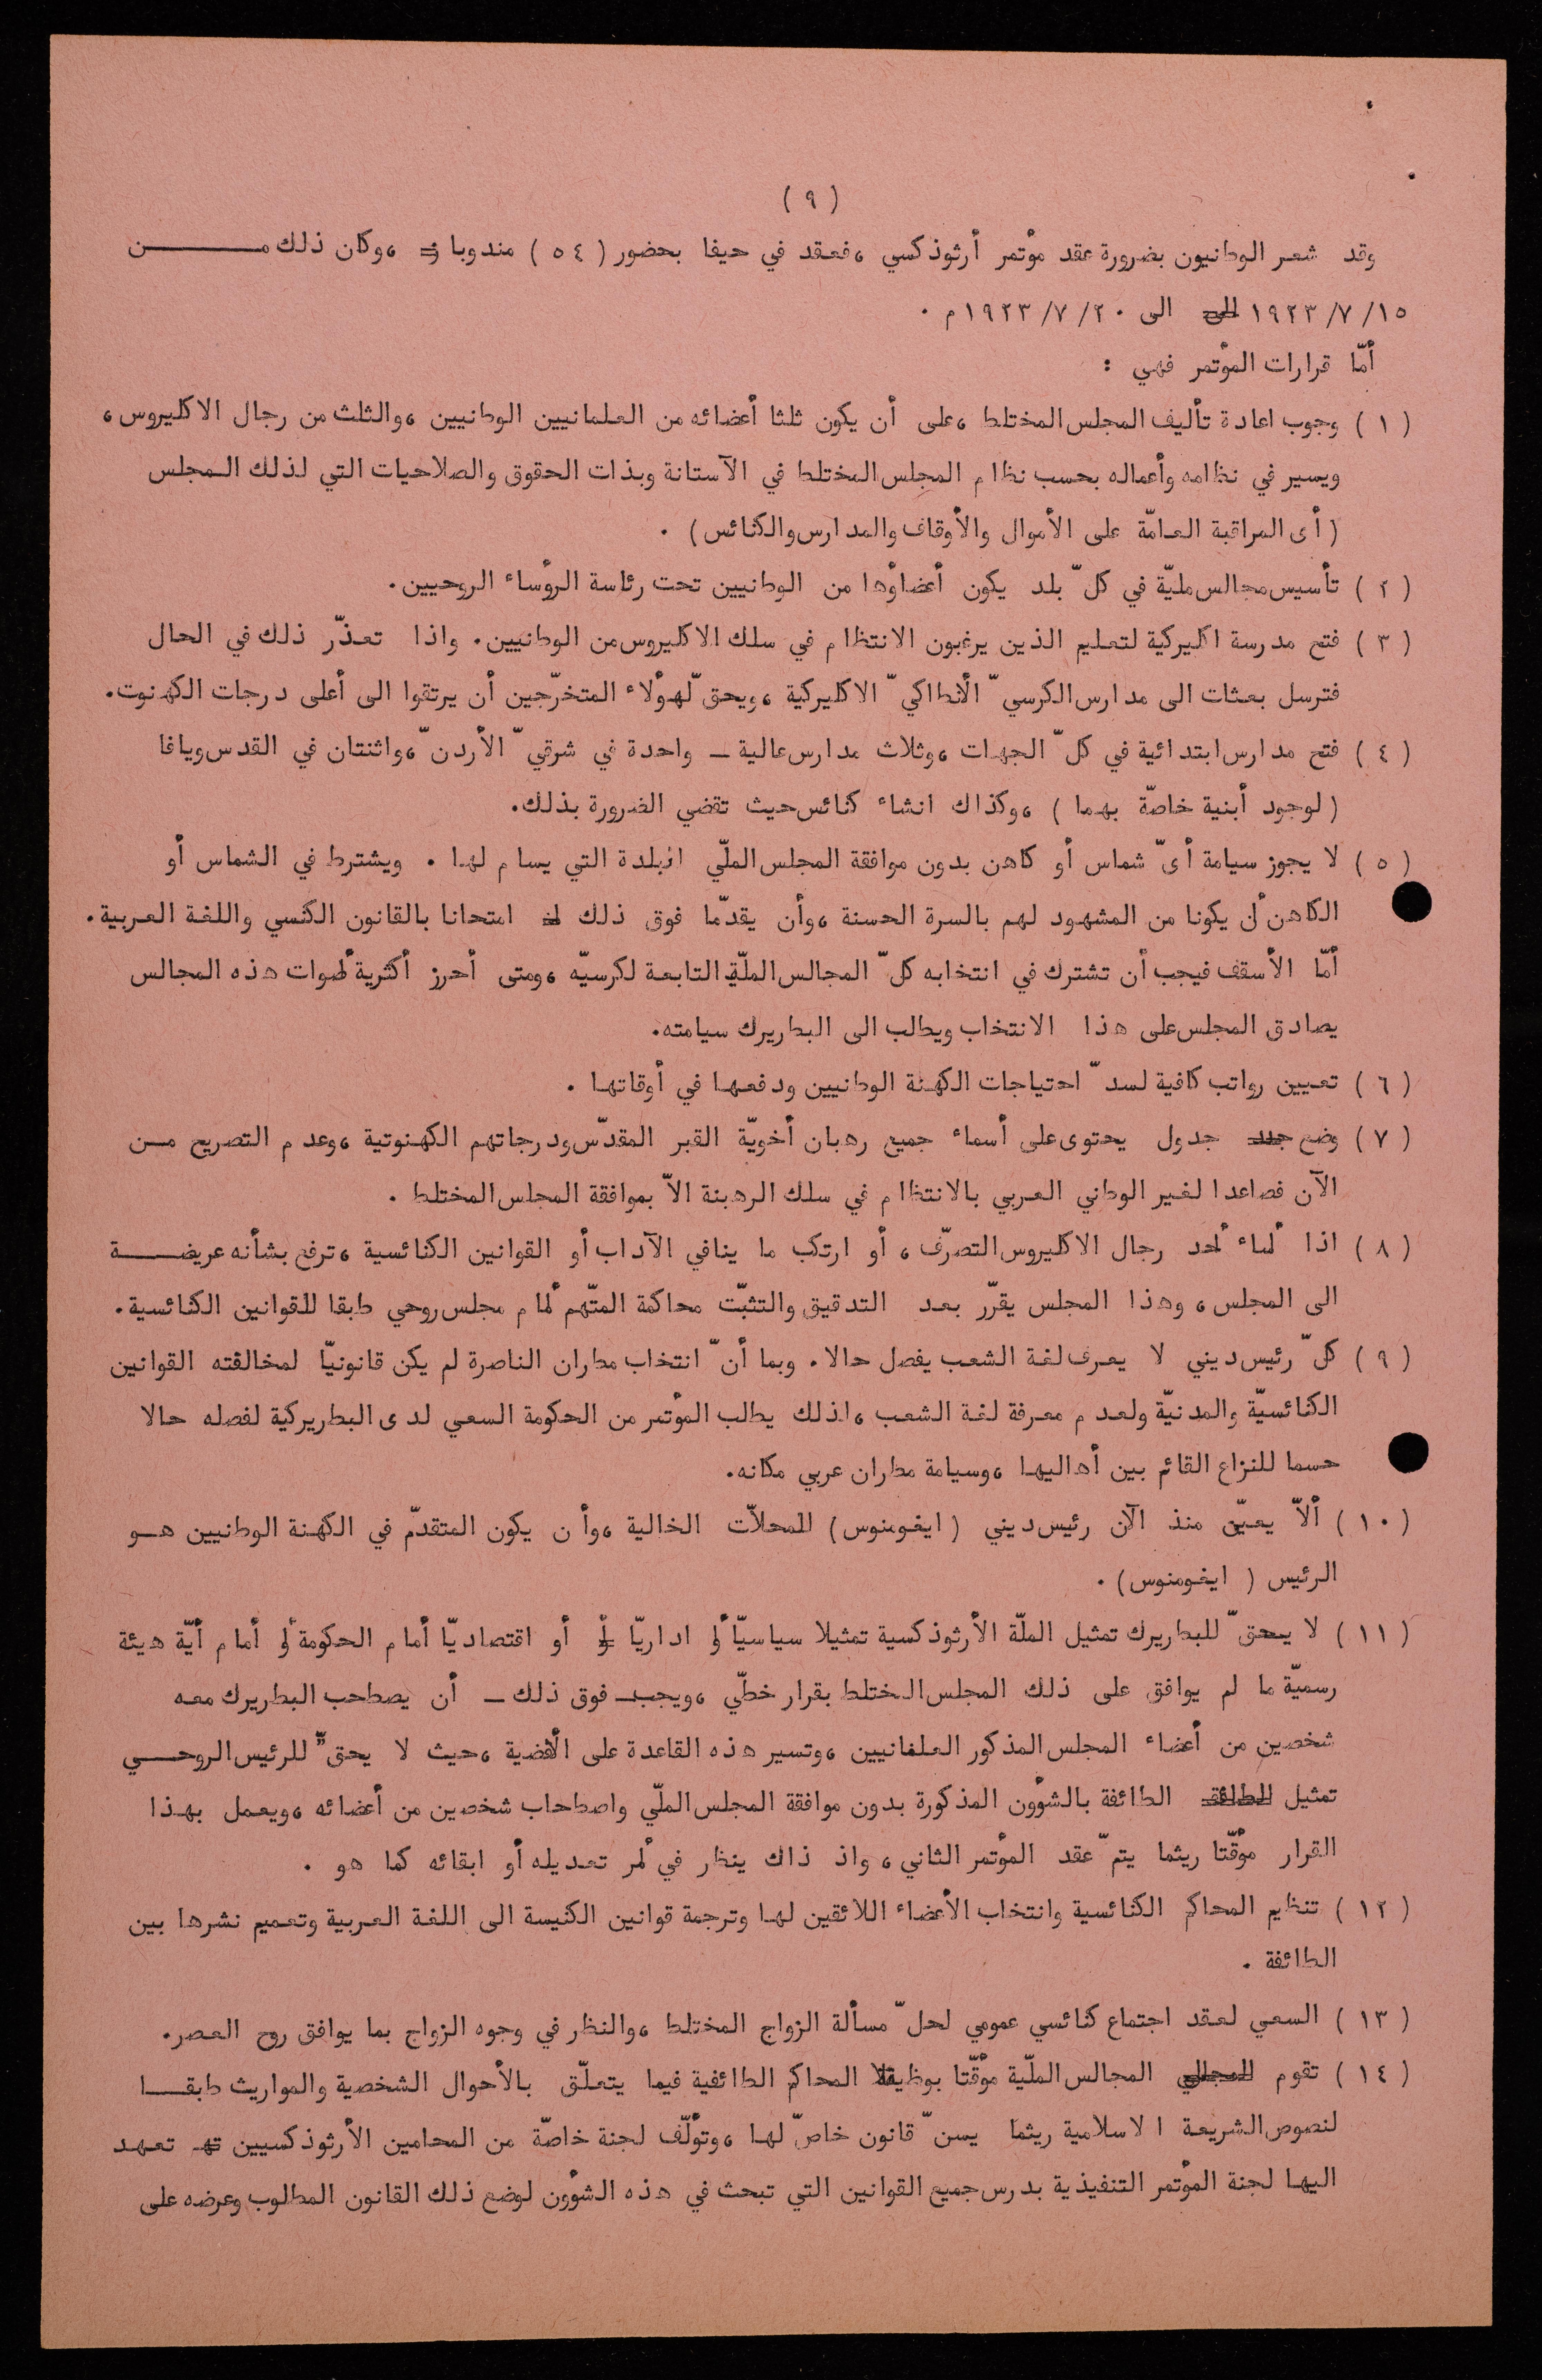 ( ٩ )
وقد شعر الوطانيون بضرورة عقد مؤتمر أرثوذكسي ، فعقد في حيفا بحضور ( ٥٤ ) مندوبا ، وكان ذلك مـــــن
١٥/ ٧/ ١٩٢٣ الى ٢٠/ ٧/ ١٩٢٣م .
أمّا قرارات المؤتمر فهي :
( ١ ) وجوب اعادة تأليف المجلس المختلط ، على أن يكون ثلثا أعضائه من العلمانيين الوطانيين ، والثلث من رجال الاكليروس ،
ويسير في نظامه وأعماله بحسب نظام المجلس المختلط في الآستانة وبذات الحقوق والصلاحيات التي لذلك المجلس
( أى المراقبة العامّة على الأموال والأوقاف والمدارس والكنائس ) .
( ٢ ) تأسيس مجالس مليّة في كلّ بلد يكون أعضاؤها من الوطانيين تحت رئاسة الرؤساء الروحيين.
( ٣ ) فتح مدرسة اكليركية لتعليم الذين يرغبون الانتظام في سلك الاكليروس من الوطانيين. واذا تعذّر ذلك في الحال
فترسل بعثات الى مدارس الكرسيّ الأنطاكيّ الاكليركية ، ويحقّ لهؤلاء المتخرّجين أن يرتقوا الى أعلى درجات الكهنوت.
( ٤ ) فتح مدارس ابتدائية في كلّ الجهات ، وثلاث مدارس عالية ــ واحدة في شرقيّ الأردنّ ، واثنتان في القدس ويافا
( لوجود أبنية خاصّة بهما ) ، وكذاك انشاء كنائس حيث تقضي الضرورة بذلك.
( ٥ ) لا يجوز سيامة أىّ شماس أو كاهن بدون موافقة المجلس الملّي البلدة التي يسام لها . ويشترط في الشماس أو
الكاهن أن يكونا من المشهود لهم بالسرة الحسنة ، وأن يقدّما فوق ذلك امتحانا بالقانون الكنسي واللغة العربية.
أمّا الأسقف فيجب أن تشترك في انتخابه كلّ المجالس الملّية التابعة لكرسيّه ، ومتى أحرز أكثرية أصوات هذه المجالس
يصادق المجلس على هذا الانتخاب ويطالب الى البطريرك سيامته.
( ٦ ) تعيين رواتب كافية لسدّ احتياجات الكهنة الوطانيين ودفعها في أوقاتها .
( ٧ ) وضع جدول يحتوى على أسماء جميع رهبان أخويّة القبر المقدّس ودرجاتهم الكهنوتية ، وعدم التصريح مــن
الآن فصاعدا لغير الوطاني العربي بالانتظام في سلك الرهبنة الاّ بموافقة المجلس المختلط .
( ٨ ) اذا أساء أحد رجال الاكليروس التصرّف ، أو ارتكب ما ينافي الآداب أو القوانين الكنائسية ، ترفع بشأنه عريضـــة
الى المجلس ، وهذا المجلس يقرّر بعد التدقيق والتثبّت محاكمة المتّهم أمام مجلس روحي طابقا للقوانين الكنائسية.
( ٩ ) كلّ رئيس ديني لا يعرف لغة الشعب يفصل حالا. وبما أنّ انتخاب مطران الناصرة لم يكن قانونيّا لمخالفته القوانين
الكنائسيّة والمدنيّة ولعدم معرفة لغة الشعب ، لذلك يطالب المؤتمر من الحكومة السعي لدى البطريركية لفصله حالا
حسما للنزاع القائم بين أهاليها ، وسيامة مطران عربي مكانه.
( ١٠ ) ألاّ يعيّن منذ الآن رئيس ديني ( ايغومنوس ) للمحلاّت الخالية ، وأن يكون المتقدّم في الكهنة الوطانيين هــو
الرئيس ( ايغومنوس ) .
( ١١ ) لا يحقّ للبطريرك تمثيل الملّة الأرثوذكسية تمثيلا سياسيّا أو اداريّا أو اقتصاديّا أمام الحكومة أو أمام أيّة هيئة
رسميّة ما لم يوافق على ذلك المجلس المختلط بقرار خطّي ، ويجب ــ فوق ذلك ــ أن يصطحب البطريرك معه
شخصين من أعضاء المجلس المذكور العلمانيين ، وتسير هذه القاعدة على الأقضية ، حيث لا يحقّ للرئيس الروحــي
تمثيل الطائفة بالشؤون المذكورة بدون موافقة المجلس الملّي واصطحاب شخصين من أعضائه ، ويعمل بهذا
القرار مؤقّتا ريثما يتمّ عقد المؤتمر الثاني ، واذ ذاك ينظر في أمر تعديله أو ابقائه كما هو .
( ١٢ ) تنظيم المحاكم الكنائسية وانتخاب الأعضاء اللائقين لها وترجمة قوانين الكنيسة الى اللغة العربية وتعميم نشرها بين
الطائفة .
( ١٣ ) السعي لعقد اجتماع كنائسي عمومي لحلّ مسألة الزواج المختلط ، والنظر في وجوه الزواج بما يوافق روح العصر.
( ١٤ ) تقوم المجالس الملّية مؤقّتا بوظيفة المحاكم الطائفية فيما يتعلّق بالأحوال الشخصية والمواريث طابقـــا
لنصوص الشريعة الاسلامية ريثما يسنّ قانون خاصّ لها ، وتؤلّف لجنة خاصّة من المحامين الأرثوذكسيين تعهد
اليها لجنة المؤتمر التنفيذية بدرس جميع القوانين التي تبحث في هذه الشؤون لوضع ذلك القانون المطلوب وعرضه على